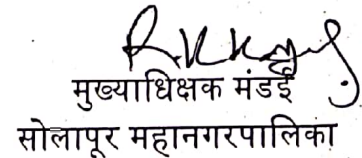 मुख्याधिक्षक मंडई
सोलापूर महानगरपालिका